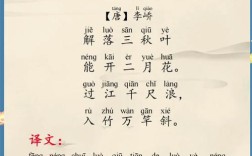 táng lǐ qiáo
【唐】李峤
jiě luò sān qiū yè
解落三秋叶
néng kāi èr yuè huā
能开二月花。
guò jiāng qiān chǐ làng
过江千尺浪，
rù zhú wàn gān xié
入竹万竿斜。
译文：